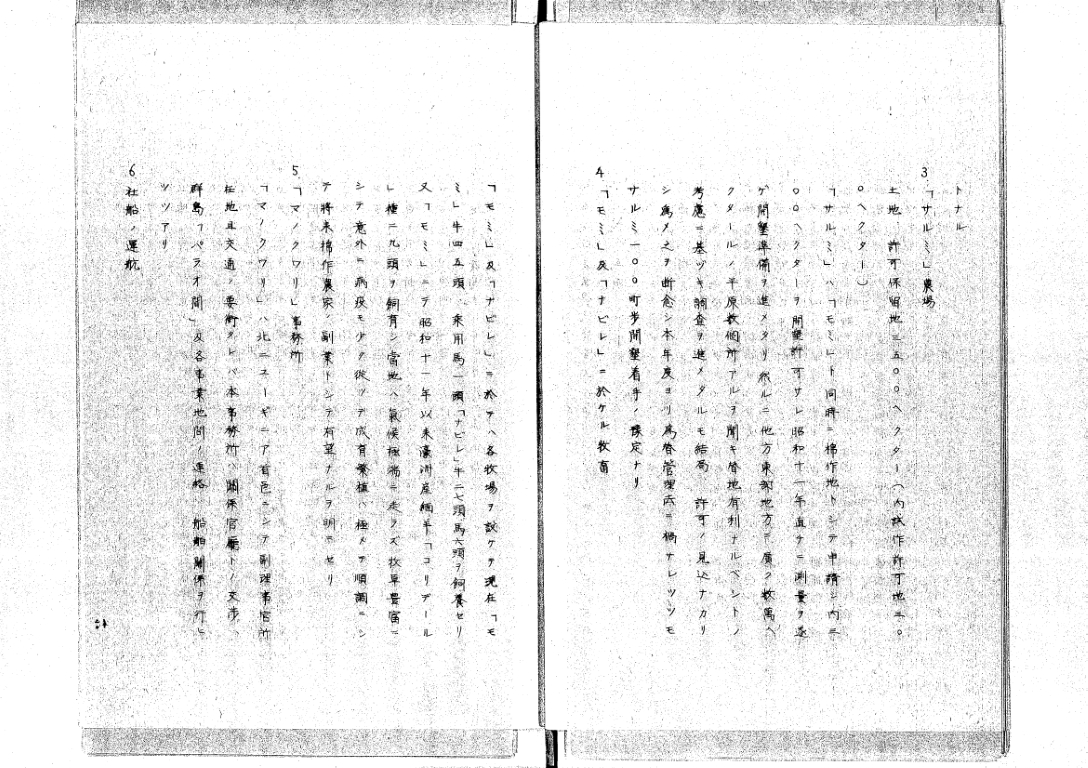 トナル
3 「サルミ」農場
土地、許可保留地二五〇〇ヘクター(内試作許可地二〇
〇ヘクター)
「サルミ」ハ「モミ」ト同時ニ棉作地トシテ申請シ内二
〇〇ヘクターヲ開墾許可サレ昭和十一年直チニ測量ヲ遂
ゲ開墾準備ヲ進メタリ然ルニ他方東部地方ニ広ク数萬ヘ
クタールノ平原数個所アルヲ聞キ替地有利ナルベシトノ
考慮ニ基ヅキ調査ヲ進メタルモ結局、許可ノ見込ナカリ
シ為メ之ヲ断念シ本年度ヨリ
サルミ一〇〇町歩開墾着手ノ豫定ナリ
4 「モミ」及「ナビレ」ニ於ケル牧畜
「モミ」及「ナビレ」ニ於テハ各牧場ヲ設ケテ現在「モ
ミ」牛四五頭、乗用馬一頭「ナビレ」牛二七頭馬六頭ヲ飼養セリ
又「モミ」ニテ昭和十一年以来濠洲産緬羊「コリデール
」種二九頭ヲ飼育シ當地ハ氣候極端ニ走ラズ牧草豊富ニ
シテ意外ニ病疫モナク従ツテ成育繁植ハ極メテ順調ニシ
テ将来棉作農家ノ副業トシテ有望ナルヲ明ニセリ
5 「マノクワリ」事務所
「マノクワリ」ハ北ニユーギニア首邑ニシテ副理事官所
在地且交通ノ要衝タレバ本事務所ハ関係官廳トノ交渉、
群島「パラオ間」及各事業地間ノ連絡、船舶関係ヲ行ヒ
ツツアリ
6 社船ノ運航